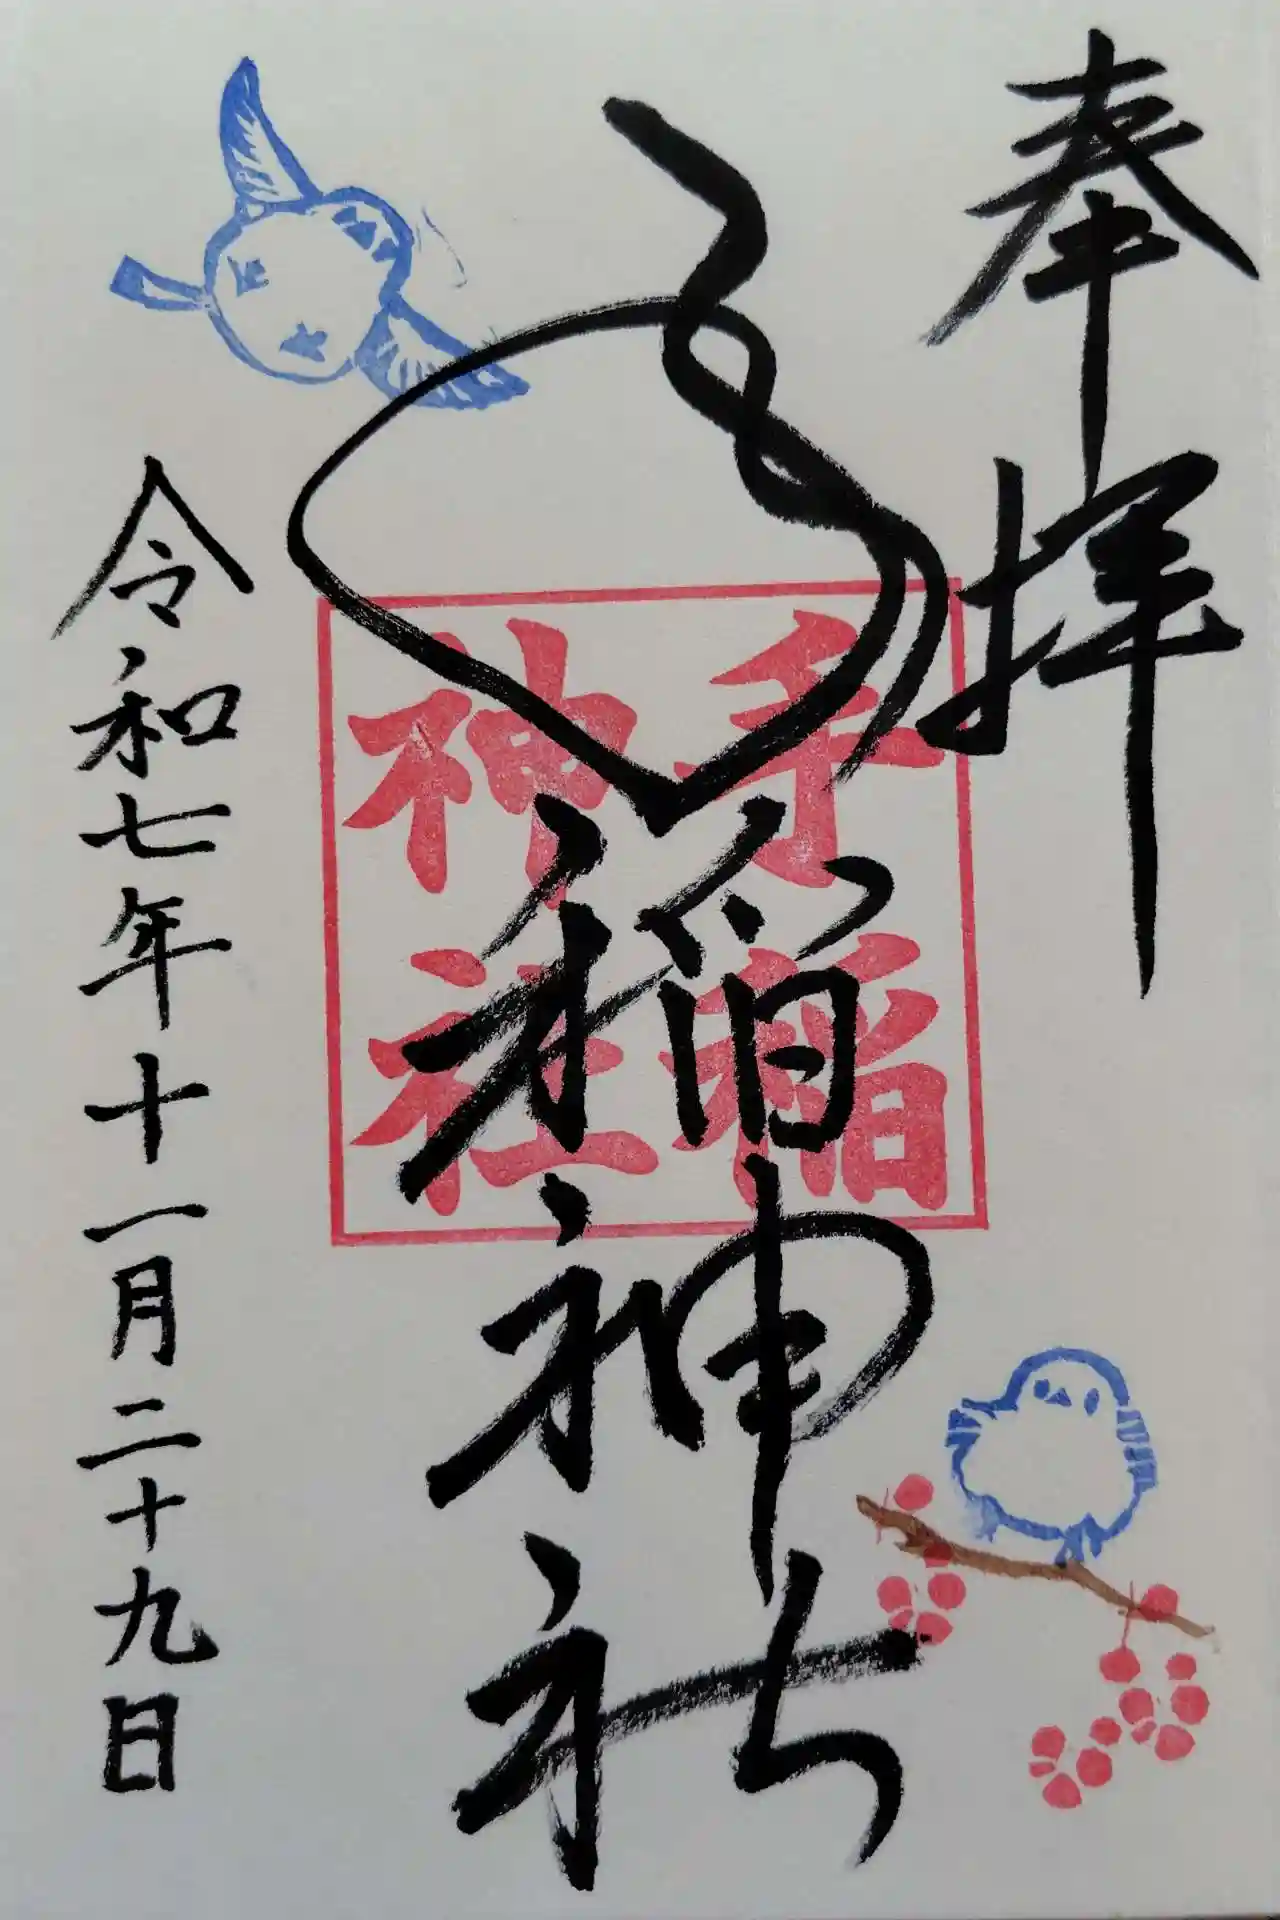 奉拝
手稲神社
手稲
神社
令和七年十一月二十九日